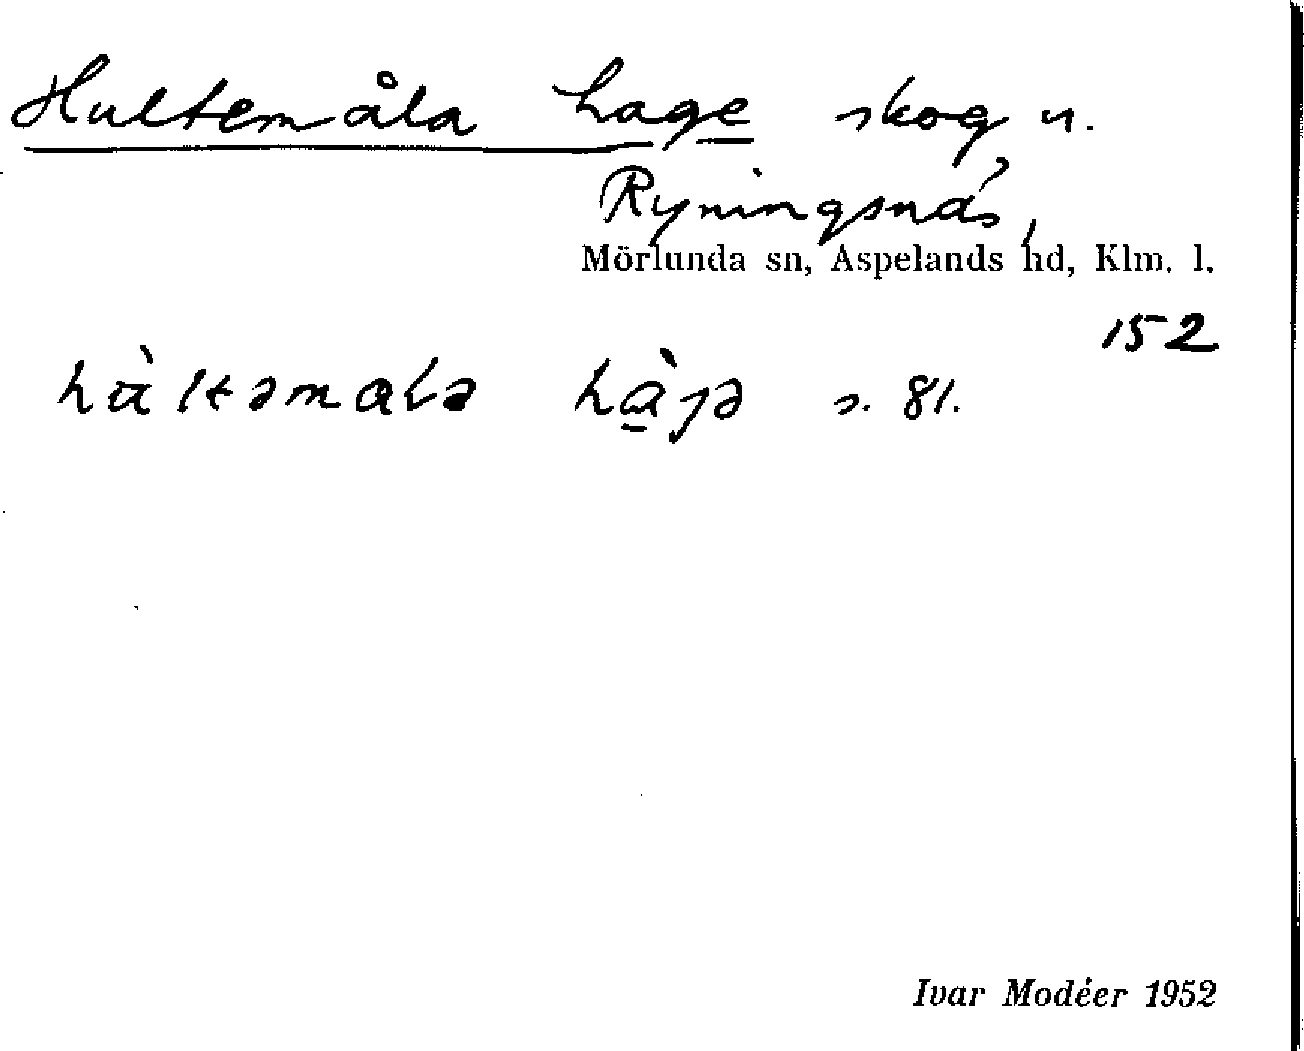 Hultemåla hage skog u.
Ryningsnäs,
Mörlunda sn, Aspelands hd, Klm. l.
152
hùltəmala hàgə s. 81.
Ivar Modéer 1952